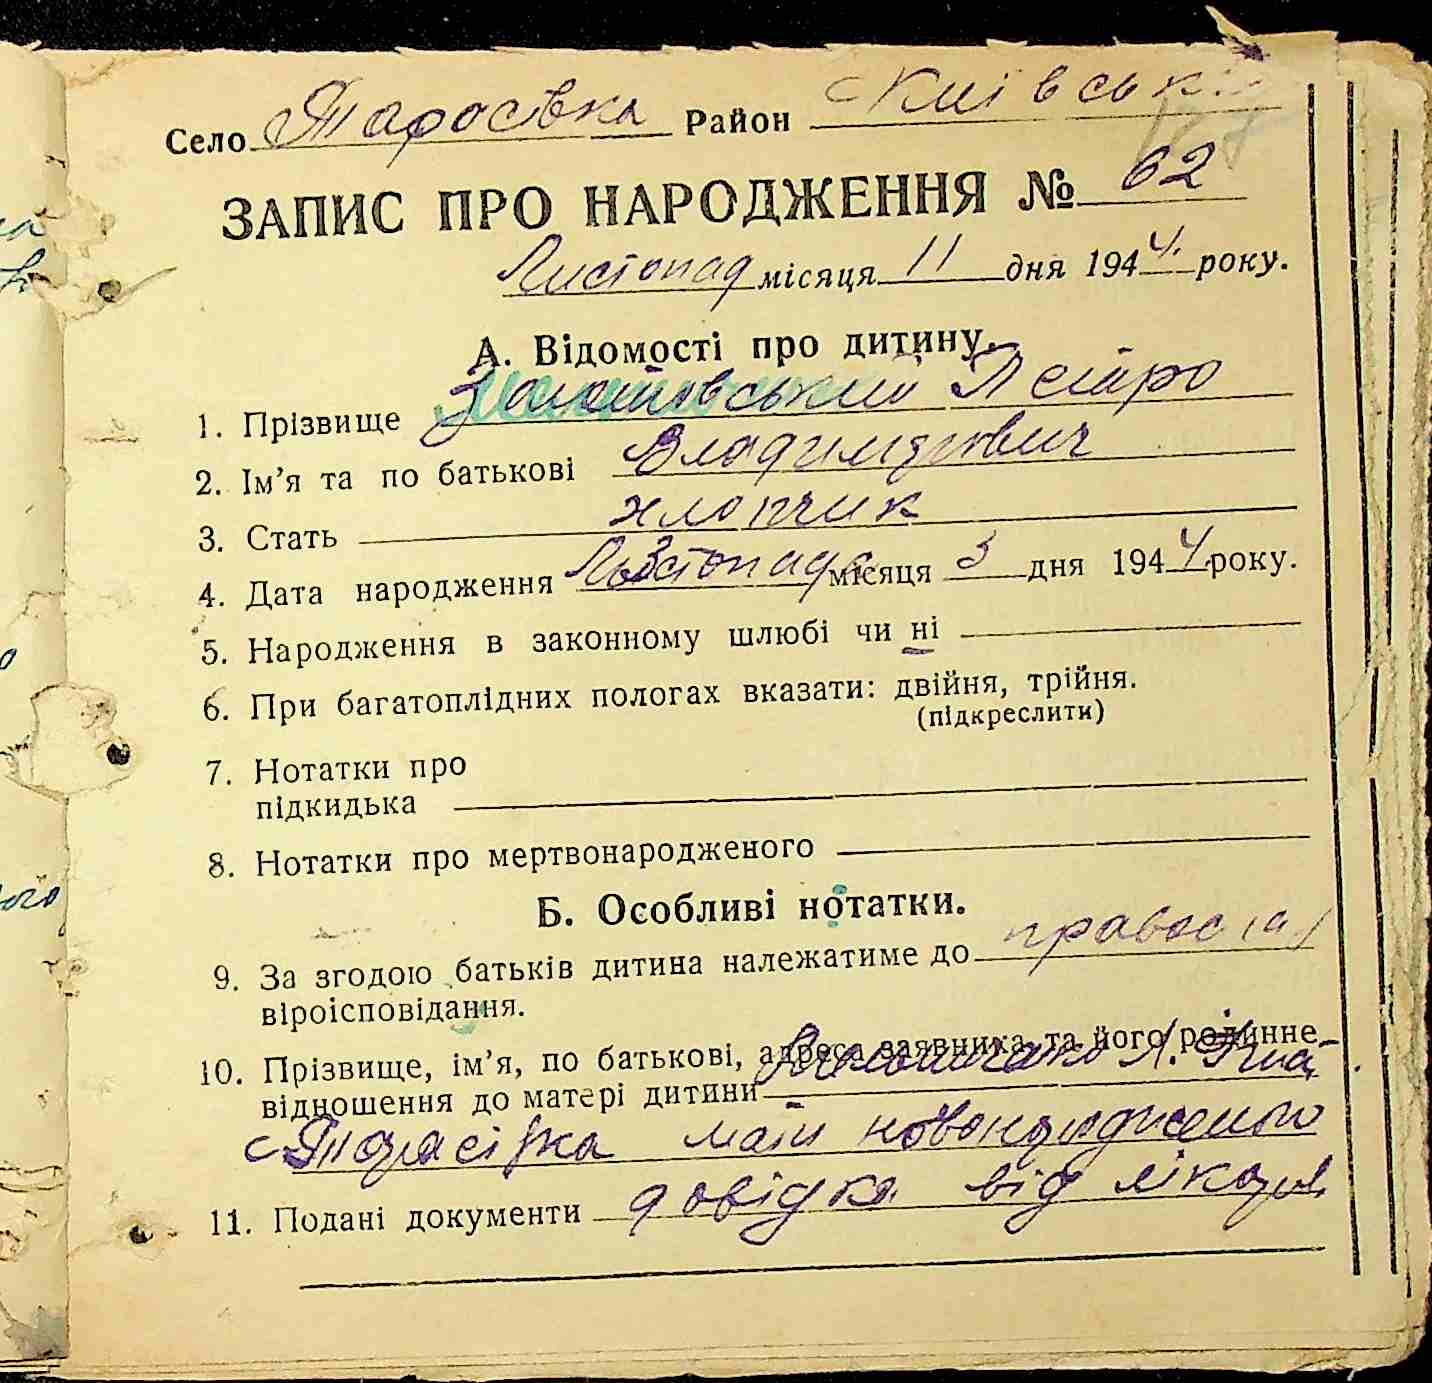 Село Тарасівка Район Київський
ЗАПИС ПРО НАРОДЖЕННЯ № 62
Листопад місяця 11 дня 1944 року.
А. Відомості про дитину.
1. Прізвище Петро
2. Ім'я та по батькові Владимирович
3. Стать хлопчик
4. Дата народження Листопада місяця 3 дня 1944 року.
5. Народження в законному шлюбі чи ні
6. При багатоплідних пологах вказати: двійня, трійня.
(підкреслити)
7. Нотатки про
підкидька
8. Нотатки про мертвонародженого
Б. Особливі нотатки.
9. За згодою батьків дитина належатиме до правосла
віроісповідання.
10. Прізвище, ім'я, по батькові, адреса заявника та його родинне
відношення до матері дитини
с Тарасівка мати новонародженого
11. Подані документи довідка від лікаря